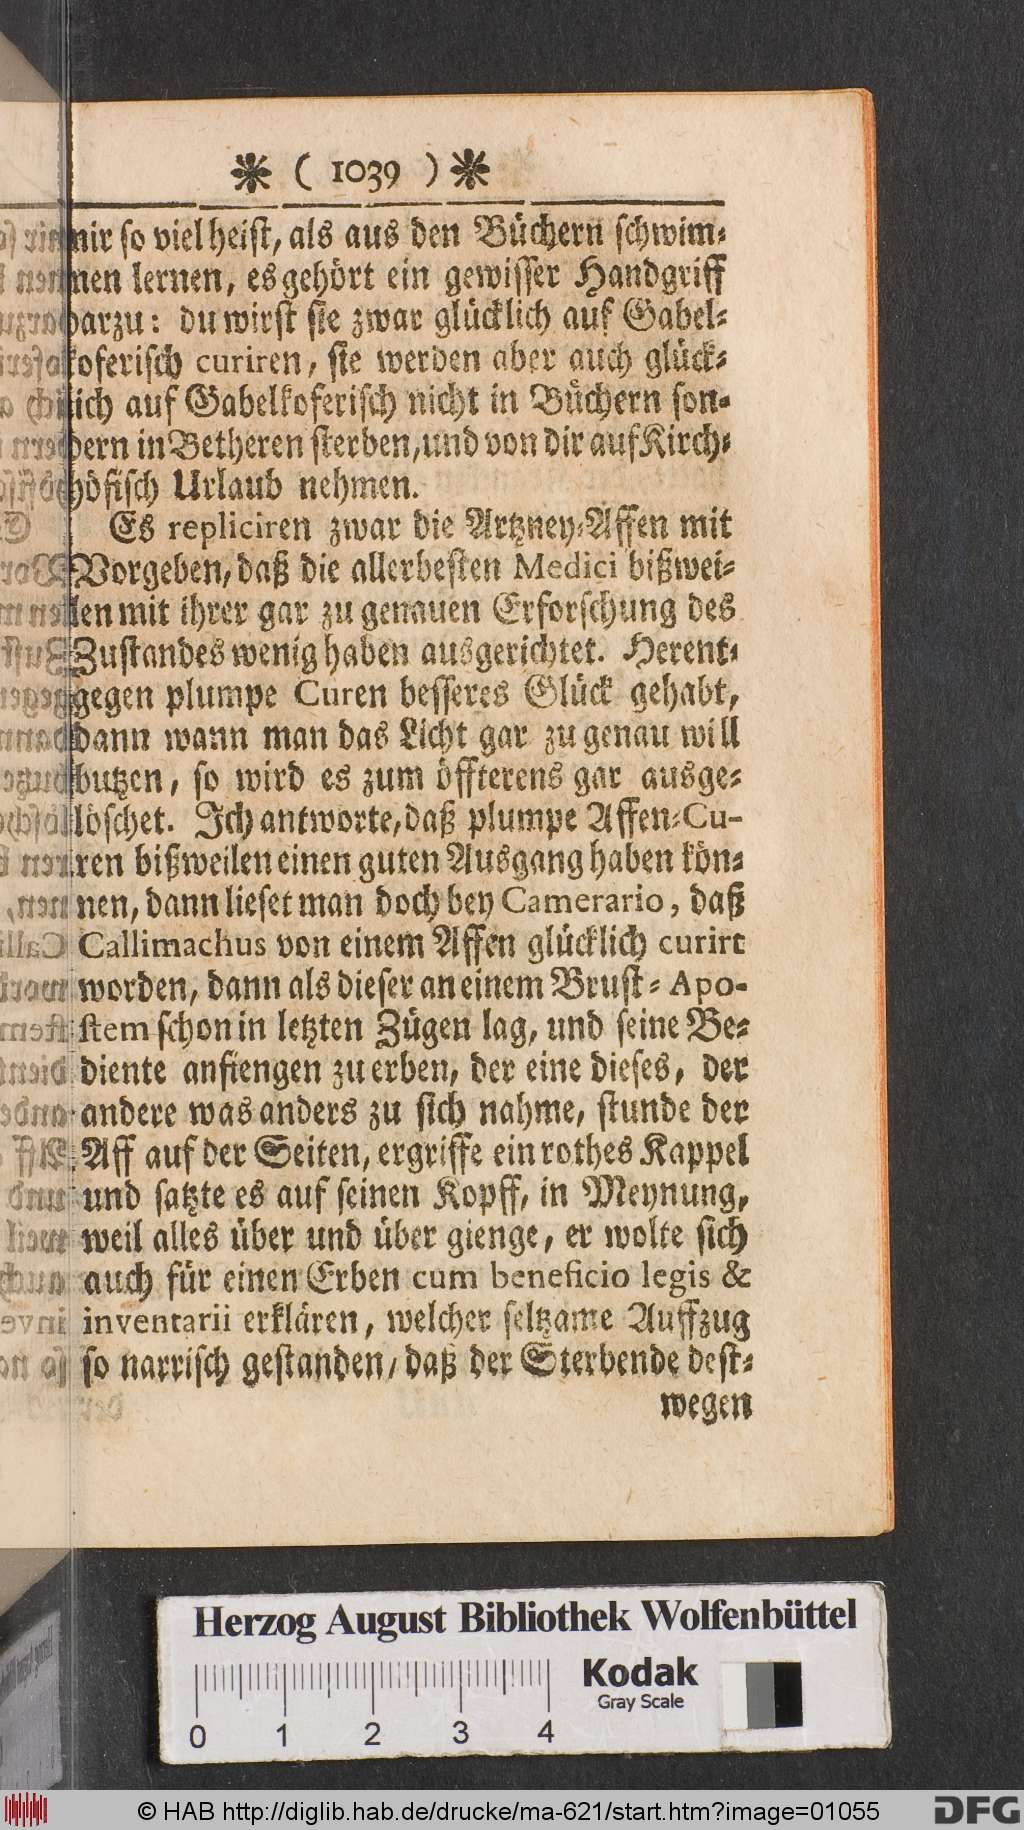 ❋ ( 1039 ) ❋
mir so viel heist, als aus den Büchern schwim-
men lernen, es gehört ein gewisser Handgriff
darzu: du wirst sie zwar glücklich auf Gabel-
koferisch curiren, sie werden aber auch glück-
lich auf Gabelkoferisch nicht in Büchern son-
dern in Betheren sterben, und von dir auf Kirch-
höfisch Urlaub nehmen.
Es repliciren zwar die Artzney-Affen mit
Vorgeben, daß die allerbesten Medici bißwei-
len mit ihrer gar zu genauen Erforschung des
Zustandes wenig haben ausgerichtet. Herent-
gegen plumpe Curen besseres Glück gehabt,
dann wann man das Licht gar zu genau will
butzen, so wird es zum öffterens gar ausge-
löschet. Ich antworte, daß plumpe Affen-Cu-
ren bißweilen einen guten Ausgang haben kön-
nen, dann lieset man doch bey Camerario, daß
Callimachus von einem Affen glücklich curirt
worden, dann als dieser an einem Brust-Apo-
stem schon in letzten Zügen lag, und seine Be-
diente anfiengen zu erben, der eine dieses, der
andere was anders zu sich nahme, stunde der
Aff auf der Seiten, ergriffe ein rothes Kappel
und satzte es auf seinen Kopff, in Meynung,
weil alles über und über gienge, er wolte sich
auch für einen Erben cum beneficio legis &
inventarii erklären, welcher seltzame Auffzug
so narrisch gestanden, daß der Sterbende dest-
wegen
Herzog August Bibliothek Wolfenbüttel
Kodak
Gray Scale
0 1 2 3 4
© HAB http://diglib.hab.de/drucke/ma-621/start.htm?image=01055
DFG